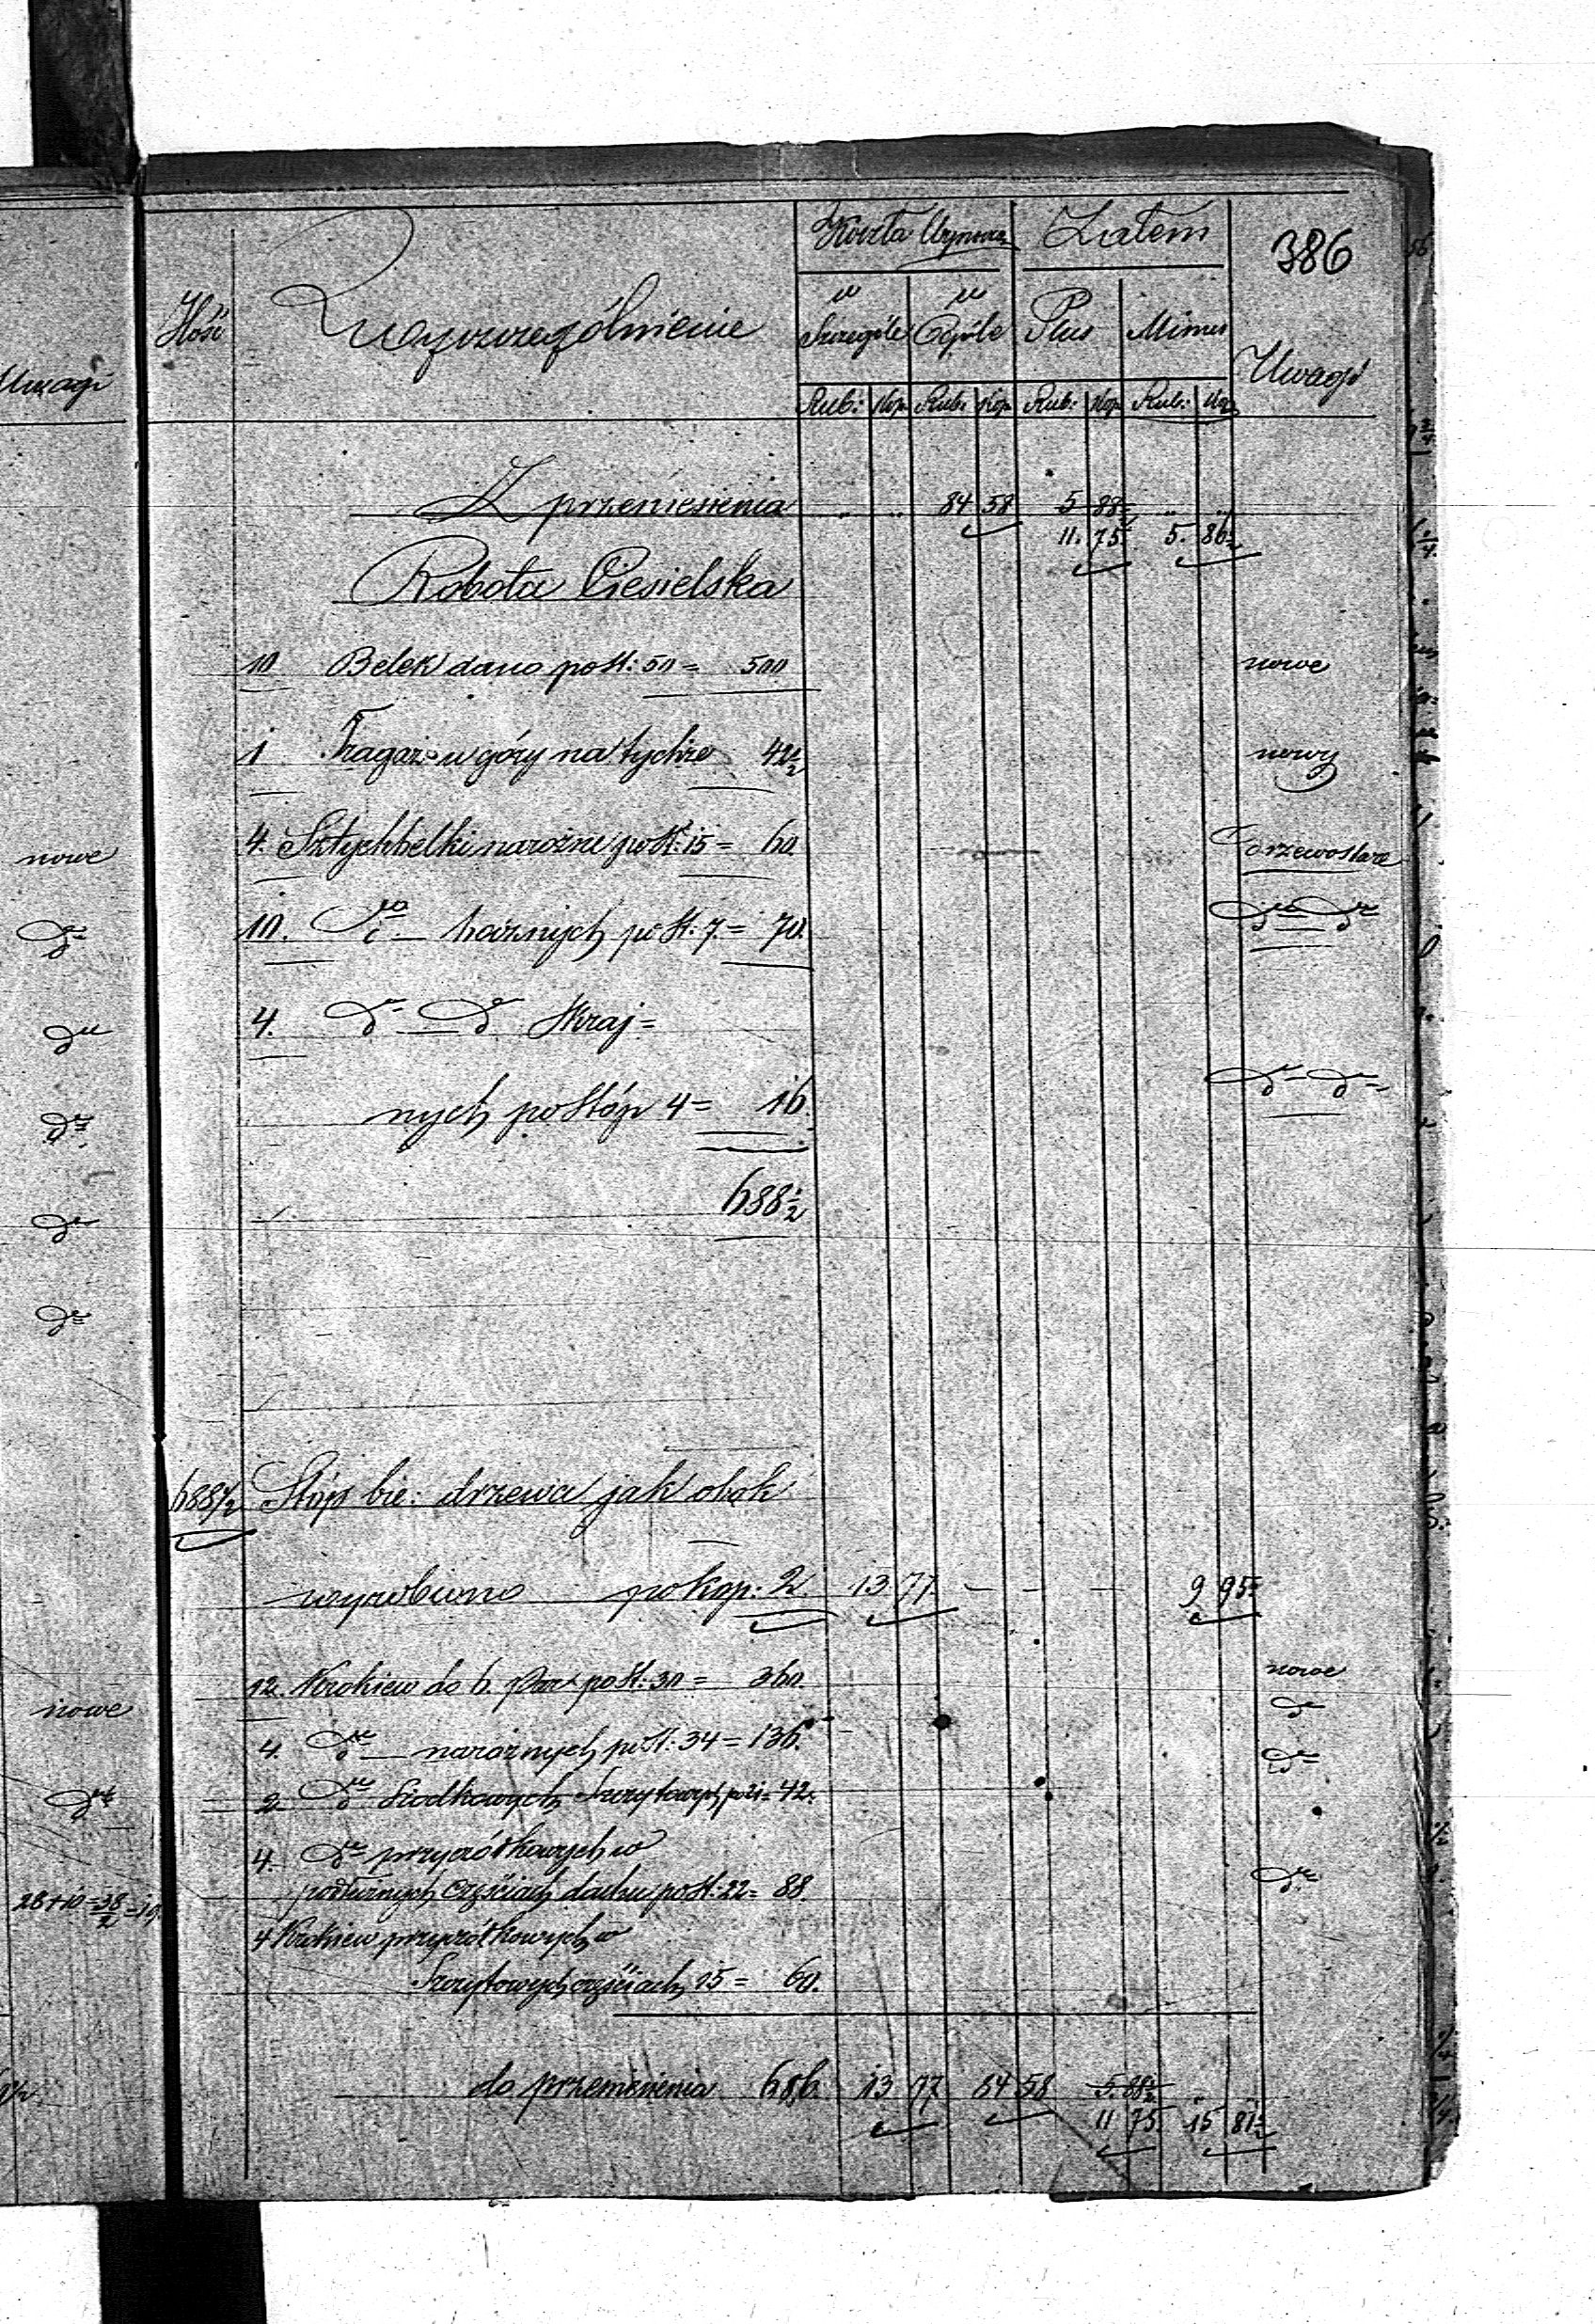 Koszta Wynosz
Zatem
386
Ilość
Wyszczególnienie
w Szczególe
w Ogóle
Plus
Minus
Uwagi
Uwagi
Rub: Kop Rub. Kop Rub: Kop Rub: Kop
Z przeniesienia 84 58 5 88
11. 75 5. 86
Robota Ciesielska
10 Belek dano po st: 50 = 500 nowe
1 Tragarz w góry na tychże 42 1/2 nowy
nowe
4. Sztychbelki narożne po st: 15 = 60 drzewo stare
dto
10. dto po st. 7. = 70. dto dto
dto
4. dto dto Skraj=
nych po stóp 4 = 16. dto dto
dto
688 1/2
dto
dto
688 1/2 Stóp bie: drzewa jak obok
wyrobiono po kop: 2 13 77 — — — 9 95
12. Krokiew do 6. po st: 30 = 360. nowe
nowe
dto
4. dto narożnych po st: 34 = 136.
dto
2 dto Szczytowych po 21 = 42.
dto
4. dto przyczółkowych w
częściach dachu po st: 22 = 88. dto
28 + 10 = 38/2 = 19.
4 Krokiew przyczółkowych w
Szczytowych częściach 15 = 60.
do przeniesienia 686. 13 77 84 58 5. 88 1/2
11 75. 15 81 1/2